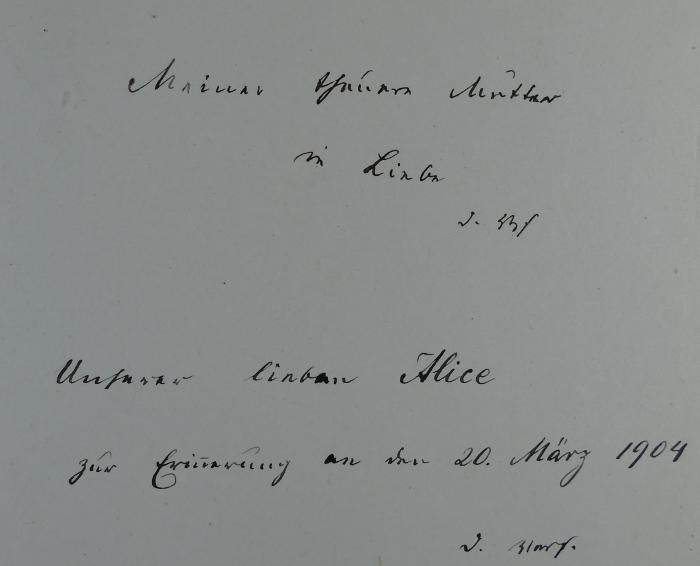 Meiner theuern Mutter
in Liebe
d. Vf
Unserer lieben Alice
zur Erinnerung an den 20. März 1904
d. Verf.